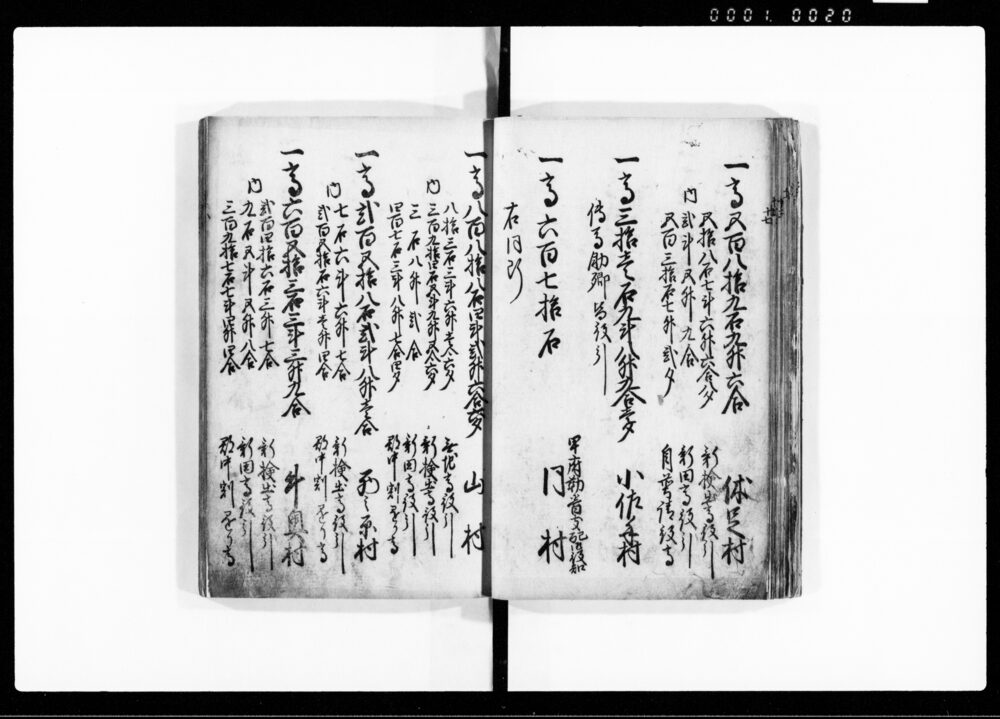 0001. 0020
一高五百八拾九石九升六合 休息村
内
五拾八石七斗六升六合八夕 新検出高役引
弐斗五升九合 新田高役引
五百三拾石七升弐夕 自普請役高
一高三拾壱石九斗八升九合壱夕 小佐手村
伝馬助郷皆役引
甲府勤番支配役知
一高六百七拾石 門村
右同断
一高八百八拾八石四斗弐升六合六夕 山村
内
八拾三石三斗六升壱合六夕 無地高役引
三百九拾四石五斗九升五合六夕 新検出高役引
三石八升弐合 新田高役引
四百七石三斗八升七合四夕 郡中割可申高
一高弐百五拾八石弐斗八升壱合 村
内
七石六斗六升七合 新検出高役引
弐百五拾石六斗壱升四合 郡中割可申高
一高六百五拾三石三斗三升九合 村
内
弐百四拾六石三升七合 新検出高役引
九石五斗五升八合 新田高役引
三百九拾七石七斗四升四合 郡中割可申高